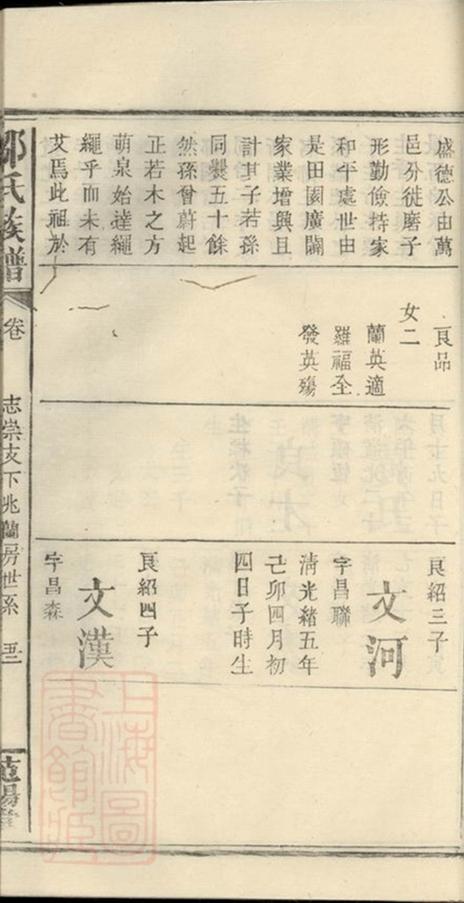 盛德公由萬
邑分徙磨子
形勤儉持家
和平處世由
是田園廣闢
家業增興且
計其子若孫
同爨五十餘
然孫曾蔚起
正若木之方
萌泉始達繩
繩乎而未有
艾焉此祖於
良品
女二
蘭英適
羅福全
發英殤
良紹三子
文河
字昌聯
清光緒五年
己卯四月初
四日子時生
良紹四子
文漢
字昌森
鄒氏族譜
卷
志崇支下兆蘭房世系
范陽堂
上海圖
書館藏